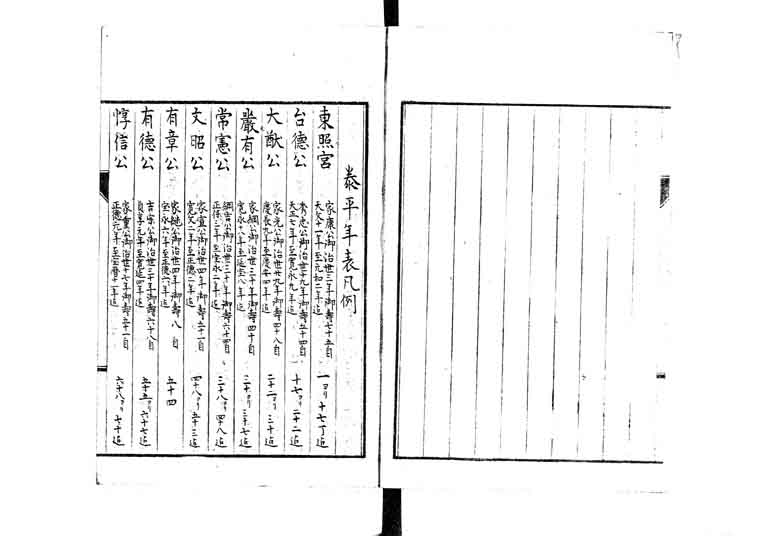 泰平年表凡例
東照宮
家康公御治世三年御壽七十五自
天文十一年至元和二年迄
一ヨリ十七丁迄
台德公
秀忠公御治世十九年御壽五十四自
天正七年至寛永九年迄
十七ヨリ二十二迄
大猷公
家光公御治世廿九年御壽四十八自
慶長九年至慶安四年迄
二十二ヨリ三十迄
嚴有公
家綱公御治世三十年御壽四十自
寛永十八年至延宝八年迄
三十ヨリ三十七迄
常憲公
綱吉公御治世三十年御壽六十四自
正保三年至宝永二年迄
三十八ヨリ四十八迄
文昭公
家宣公御治世四年御壽五十一自
寛文二年至正德二年迄
四十八ヨリ五十三迄
有章公
家継公御治世四年御壽八自
宝永六年至正德六年迄
五十四
有德公
吉宗公御治世三十年御壽六十八自
貞享元年至寛延四年迄
五十五ヨリ六十七迄
惇信公
家重公御治世十七年御壽五十一自
正德元年至宝暦十一年迄
六十八ヨリ七十迄